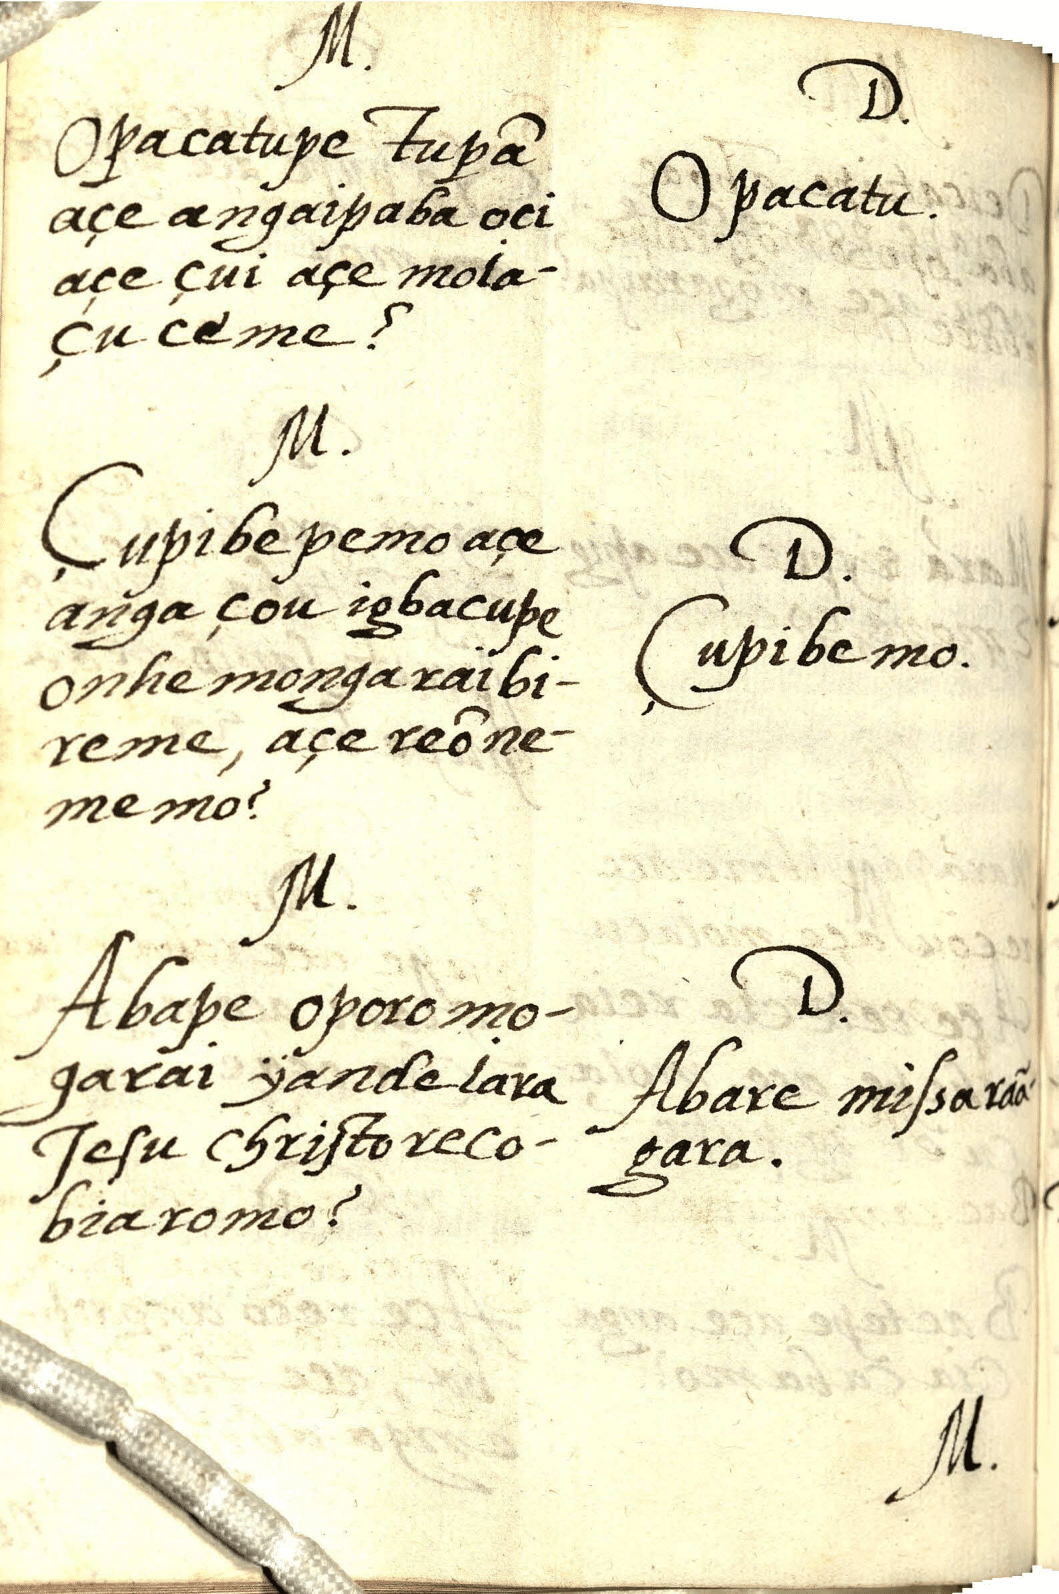 M.
Opacatupe Tupã
açe angaipaba oci
açe çui açe moia-
çuceme?
D.
Opacatu.
M.
Çupibe pemo açe
anga çou igbacupe
onhemongaraibi-
reme, açe reõne-
memo?
D.
Çupibemo.
M.
Abape oporomo-
garai ÿande iara
Jesu Christo reco-
biaromo?
D.
Abare missa rãa
gara.
M.